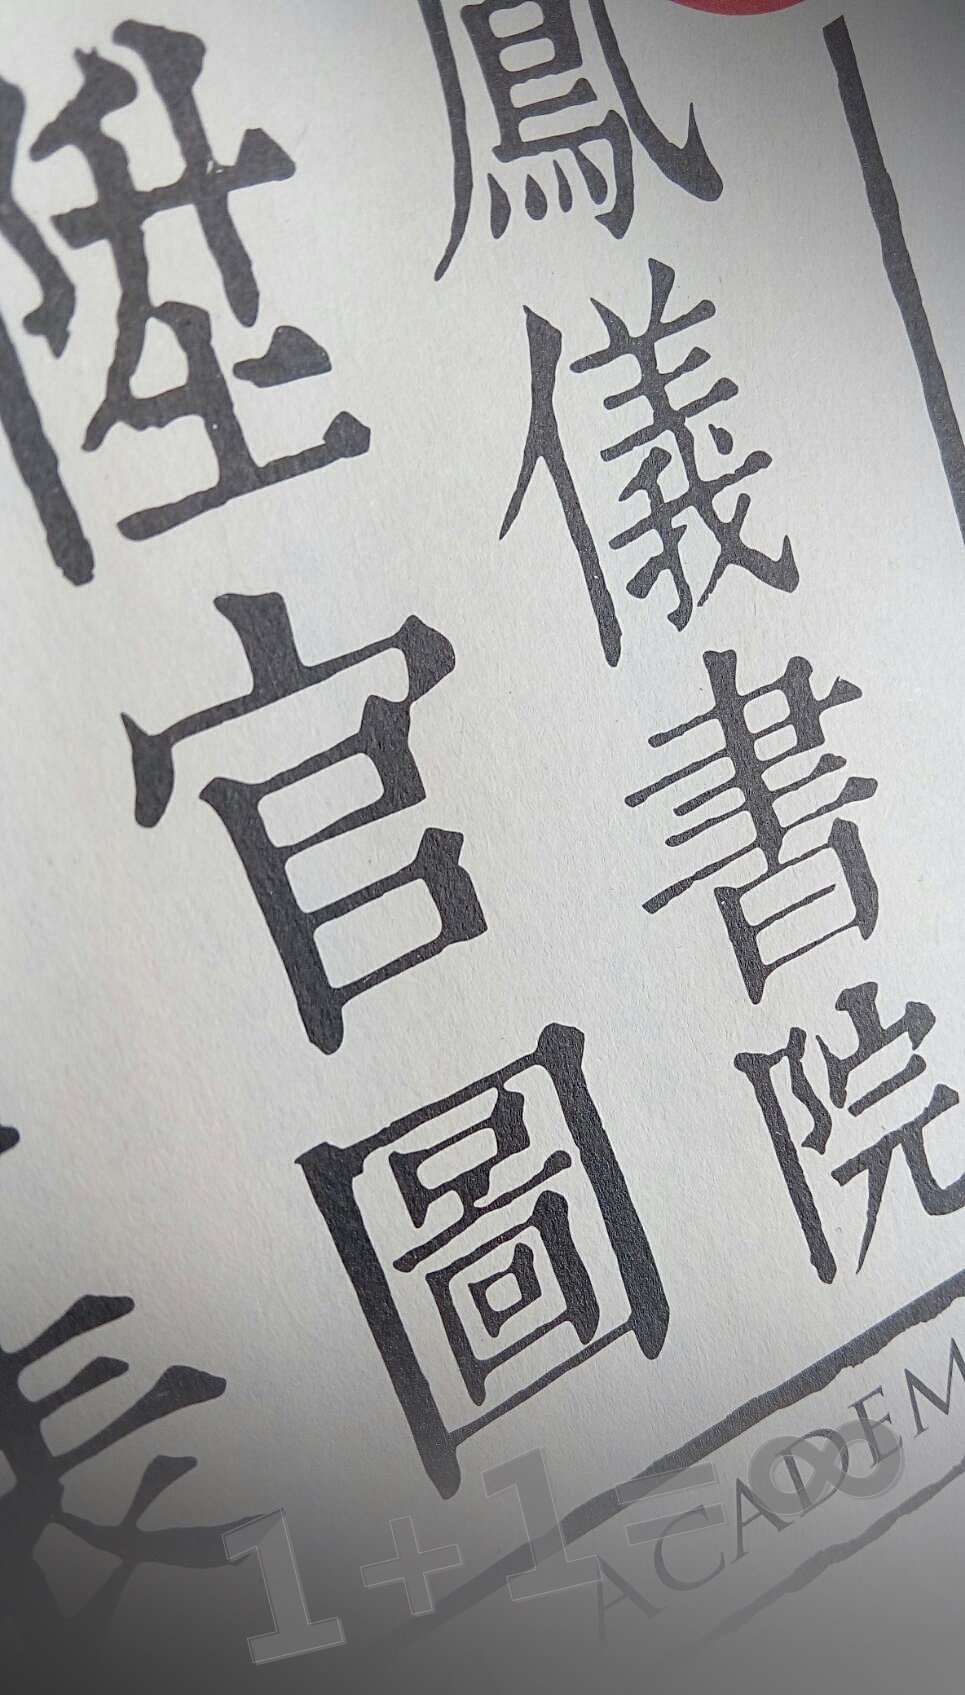 鳳儀書院
陞官圖
ACADEM
1+1=∞